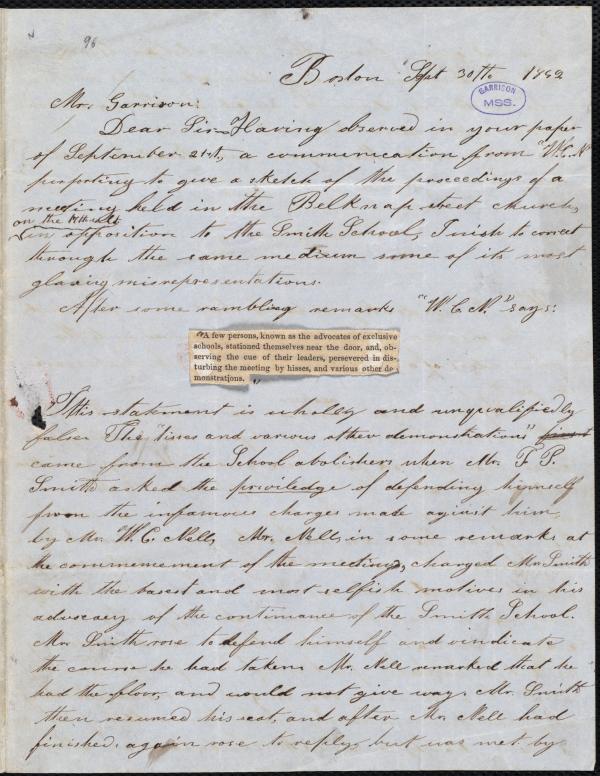 96
Boston Sept 30th 1849
GARRISON
MSS.
Mr. Garrison:
Dear Sir—Having observed in your paper
of September 21st, a communication from "W.C.N"
purporting to give a sketch of the proceedings of a
meeting held in the Belknap street church,
on the 17th inst
in opposition to the Smith School, I wish to correct
through the same medium some of its most
glaring misrepresentations.
After some rambling remarks "W.C.N." says:
"A few persons, known as the advocates of exclusive
schools, stationed themselves near the door, and, ob-
serving the cue of their leaders, persevered in dis-
turbing the meeting by hisses, and various other de-
monstrations."
This statement is wholly and unqualifiedly
false. The "hisses and various other demonstrations"
came from the School abolishers when Mr. T. P.
Smith asked the priviledge of defending himself
from the infamous charges made against him
by Mr. W. C. Nell. Mr. Nell, in some remarks at
the commencement of the meeting, charged Mr. Smith
with the basest and most selfish motives in his
advocacy of the continuance of the Smith School.
Mr. Smith rose to defend himself and vindicate
the course he had taken. Mr. Nell remarked that he
had the floor, and would not give way. Mr. Smith
then resumed his seat, and after Mr. Nell had
finished, again rose to reply, but was met by